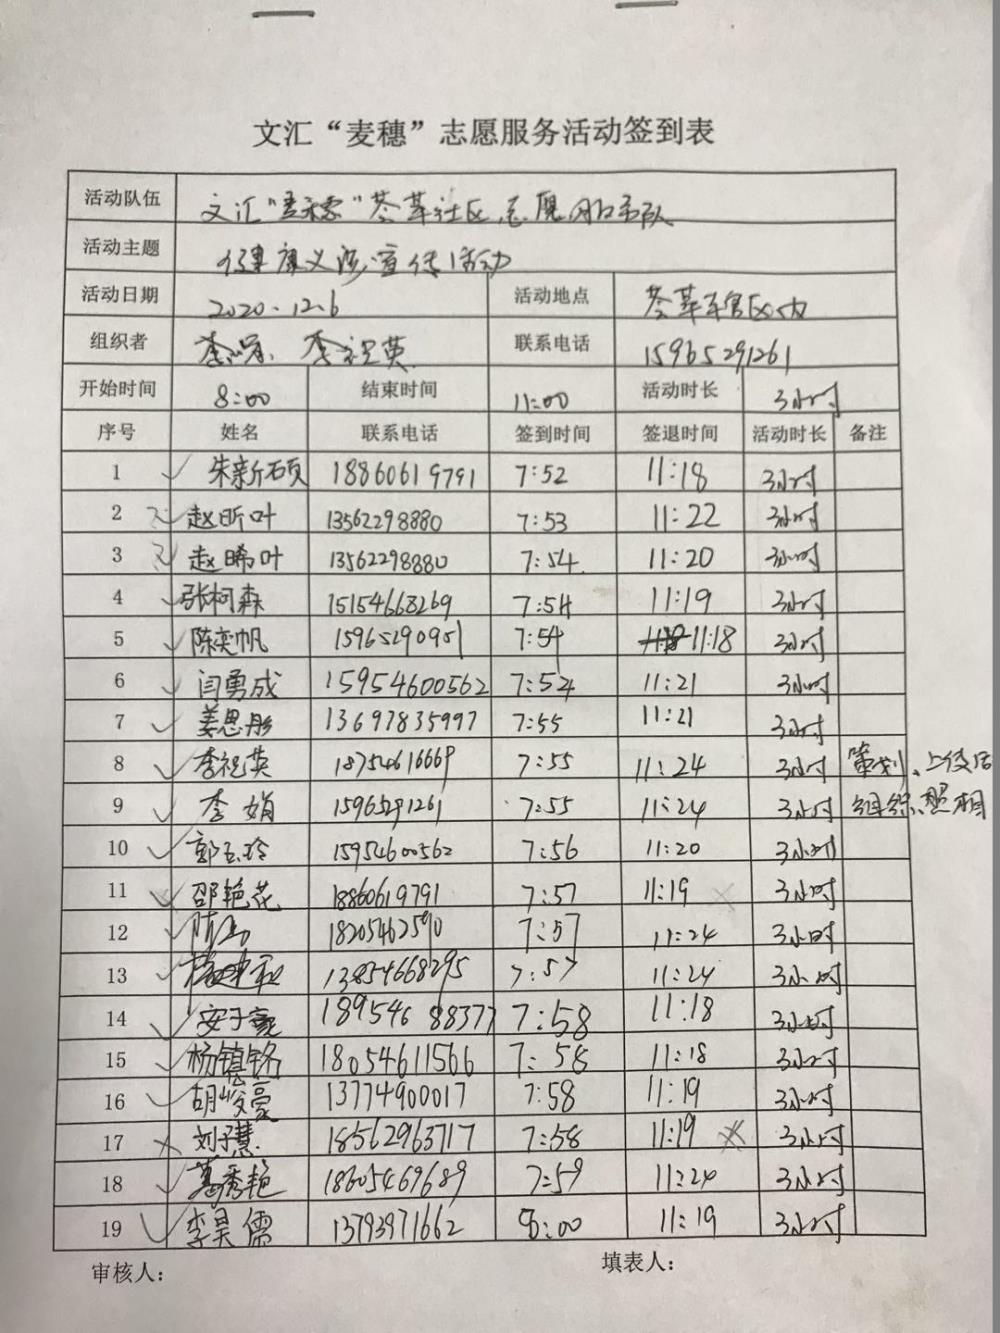 文汇“麦穗”志愿服务活动签到表
活动队伍 文汇“麦穗”荟萃社区志愿服务队
活动主题 健康义诊宣传活动
活动日期 2020.12.6 活动地点 荟萃
组织者 李娟、李祝英 联系电话 15965291261
开始时间 8:00 结束时间 11:00 活动时长 3小时
序号 姓名 联系电话 签到时间 签退时间 活动时长 备注
1 朱新硕 18860619791 7:52 11:18 3小时
2 赵昕叶 13562298880 7:53 11:22 3小时
3 赵晞叶 13562298880 7:54 11:20 3小时
4 张柯森 15154668269 7:54 11:19 3小时
5 陈奕帆 15965290951 7:54 11:18 3小时
6 闫勇成 15954600562 7:54 11:21 3小时
7 姜思彤 13697835997 7:55 11:21 3小时
8 李祝英 18754616669 7:55 11:24 3小时 策划、上传后
9 李娟 15965291261 7:55 11:24 3小时 组织、照相
10 郭玉玲 15954600562 7:56 11:20 3小时
11 邵艳花 18860619791 7:57 11:19 3小时
12 18205462590 7:57 11:24 3小时
13 13854668295 7:57 11:24 3小时
14 安子豪 18954688377 7:58 11:18 3小时
15 杨镇铭 18054611566 7:58 11:18 3小时
16 胡峻豪 13774900017 7:58 11:19 3小时
17 刘子慧 18562963717 7:58 11:19 3小时
18 葛秀艳 18605469689 7:59 11:24 3小时
19 李昊儒 13793971662 8:00 11:19 3小时
审核人： 填表人：